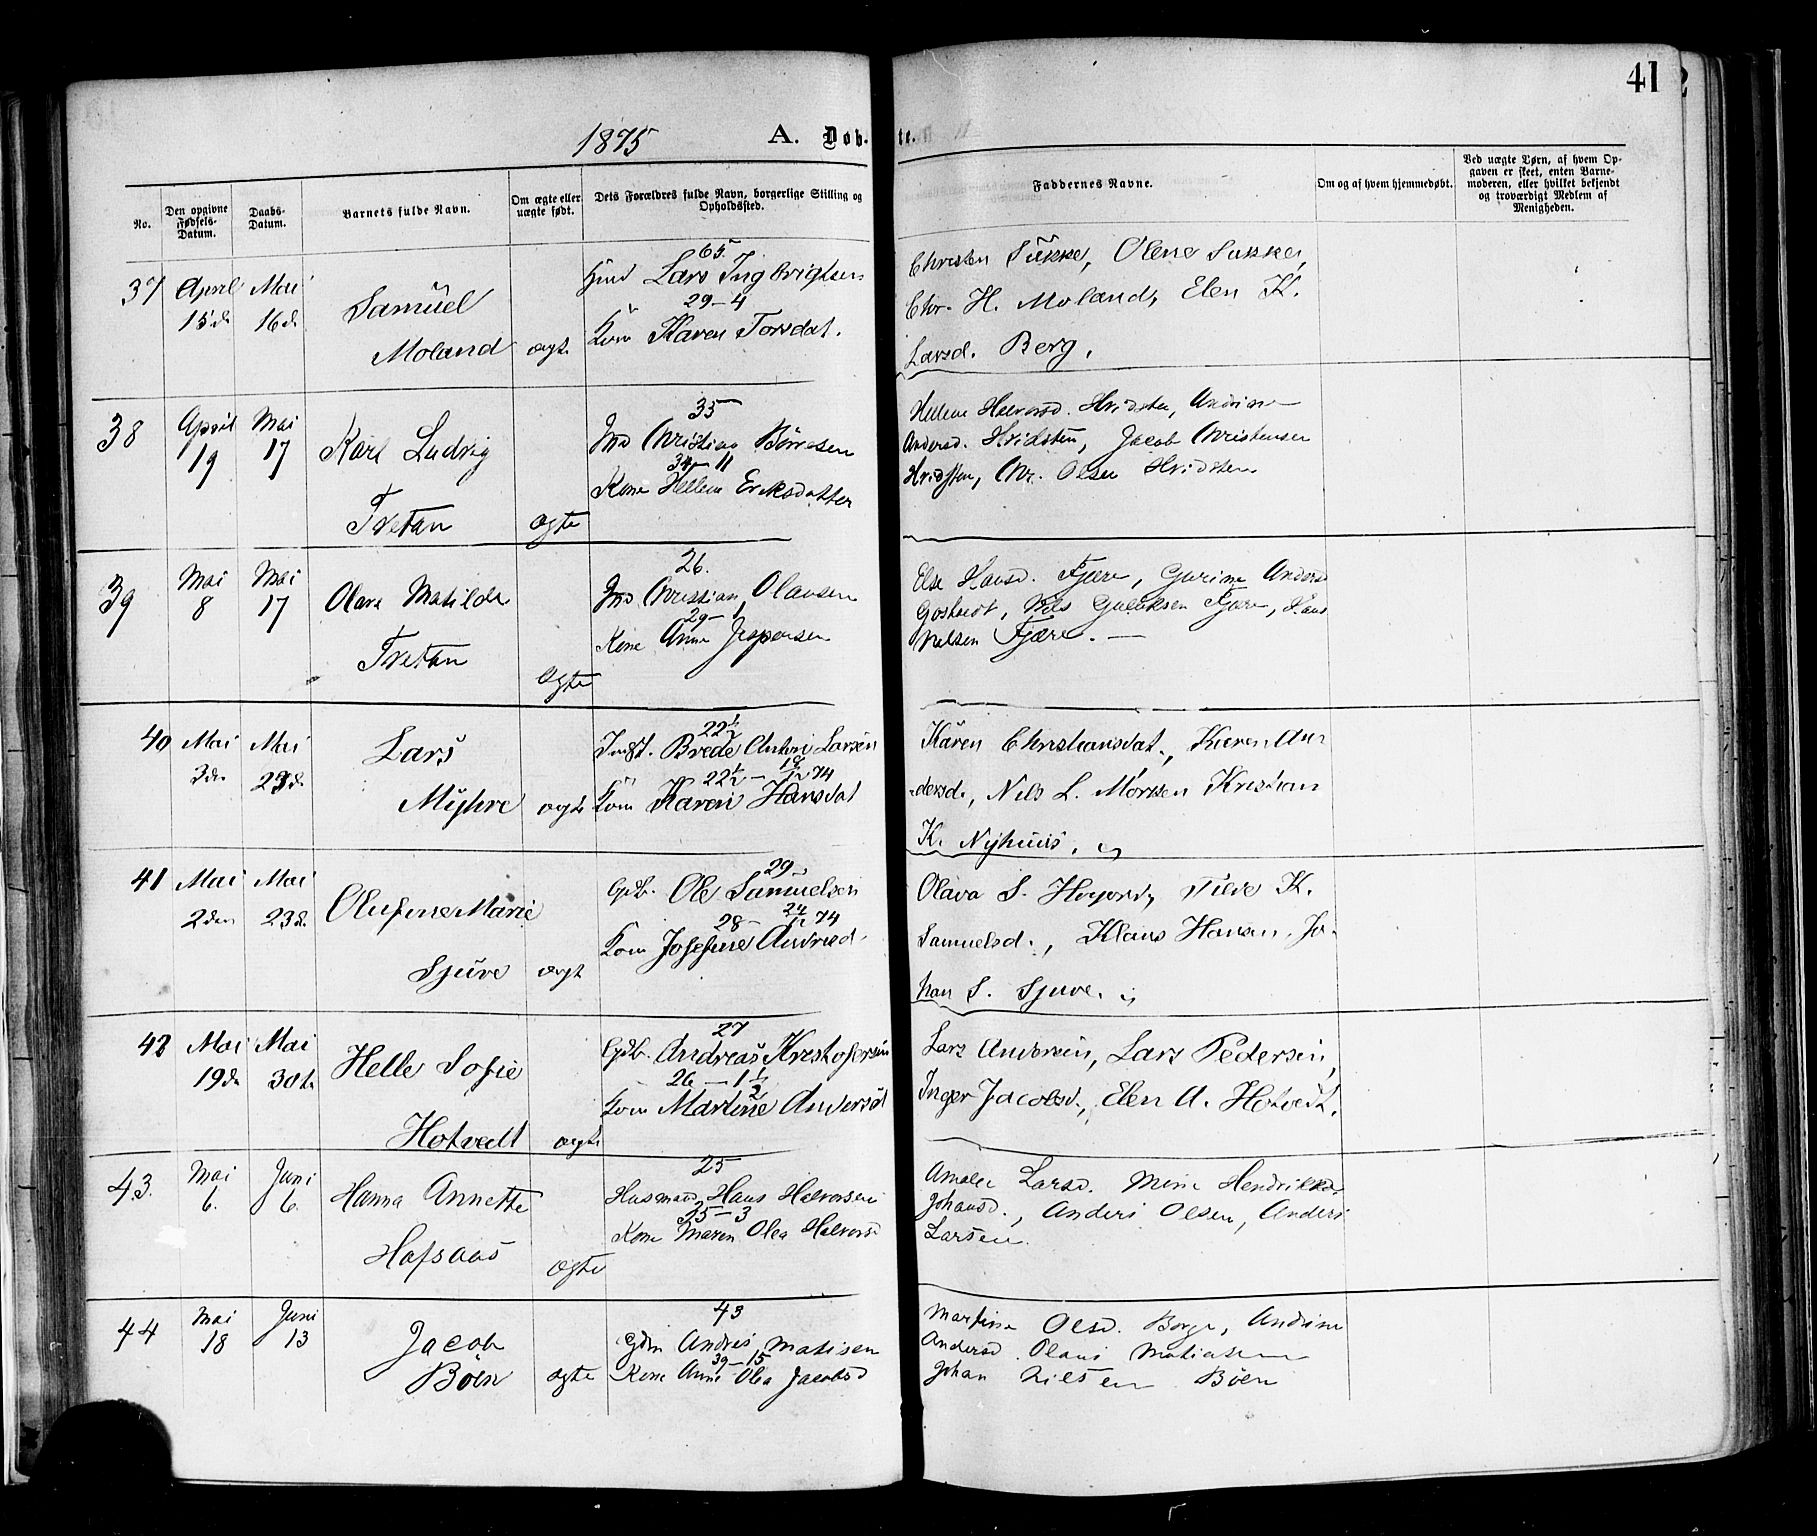 41
1875 A. Døbte.
No.
Den opgivne Fødsels-Datum.
Daabs-Datum.
Barnets fulde Navn.
Om ægte eller uægte født.
Dets Forældres fulde Navn, borgerlige Stilling og Opholdssted.
Faddernes Navne.
Om og af hvem hjemmedøbt.
Ved uægte Børn, af hvem Opgaven er skeet, enten Barnemoderen, eller hvilket bekjendt og troværdigt Medlem af Menigheden.
37 April 15de Mai 16de
Samüel
Moland ægte
65.
Lars Ingbrigtsen
29-4
Karen Torsdat.
Christen Sükke, Olene Sukke,
Chr. H. Moland, Elen K.
Larsd. Berg.
38 April 19 Mai 17
Karl Ludvig
Tretan ægte
35
Christian Børresen
34-11
Kone Hellene Eriksdatter
Hellene Halvorsd. Hvidsten, Andrine
Andersd. Hvidsten, Jacob Christensen
Hvidsten, Chr. Olsen Hvidsten
39 Mai 8 Mai 17
Olava Matilde
Tretan ægte
26.
Christian Olausen
29-1
Kone Anne Jespersen
Else Hansd. Fjære, Gurine Andersd
Nils Gulliksen Fjære, Hans
Nielsen Fjære.
40 Mai 3den Mai 23d.
Lars
Myhre ægte
22½
Brede Anton Larsen
22½ - 18/12 74
Karen Hansdat
Karen Christiansdat., Karen An-
dersd., Nils L. Kristian
K. Nyhuus.
41 Mai 2den Mai 23d.
Olufine Marie
Sjüve ægt
29
Gdb. Ole Samuelsen
28 - 24/12 74
Josefine Andresd.
Olava S. Tilve K.
Samuelsd., Klaus Hansen, Jo-
han S. Sjuve.
42 Mai 19de Mai 30te
Helle Sofie
Hotvedt ægte
27
Gdb. Andreas Kristofersen
26 - 1½
Martine Andersd
Lars Andersen, Lars Pedersen,
Inger Jacobsd., Elen A. Hotvedt.
43. Mai 6. Juni 6.
Hanna Annette
Hafsaas ægte
25
Husmand Hans Halvorsen
25-3
Kone Maren Olea Halvorsd
Amalie Larsd. Mine Hendrikke
Johansd., Anders Olsen, Anders
Larsen.
44 Mai 18 Juni 13
Jacob
Böen ægte
43
Gdm Andris Matisen
39-15
Kone Anne Olea Jacobsd
Martine Olsd. Borge, Andrine
Andersd. Olaus Matiasen
Johan Nilsen Böen